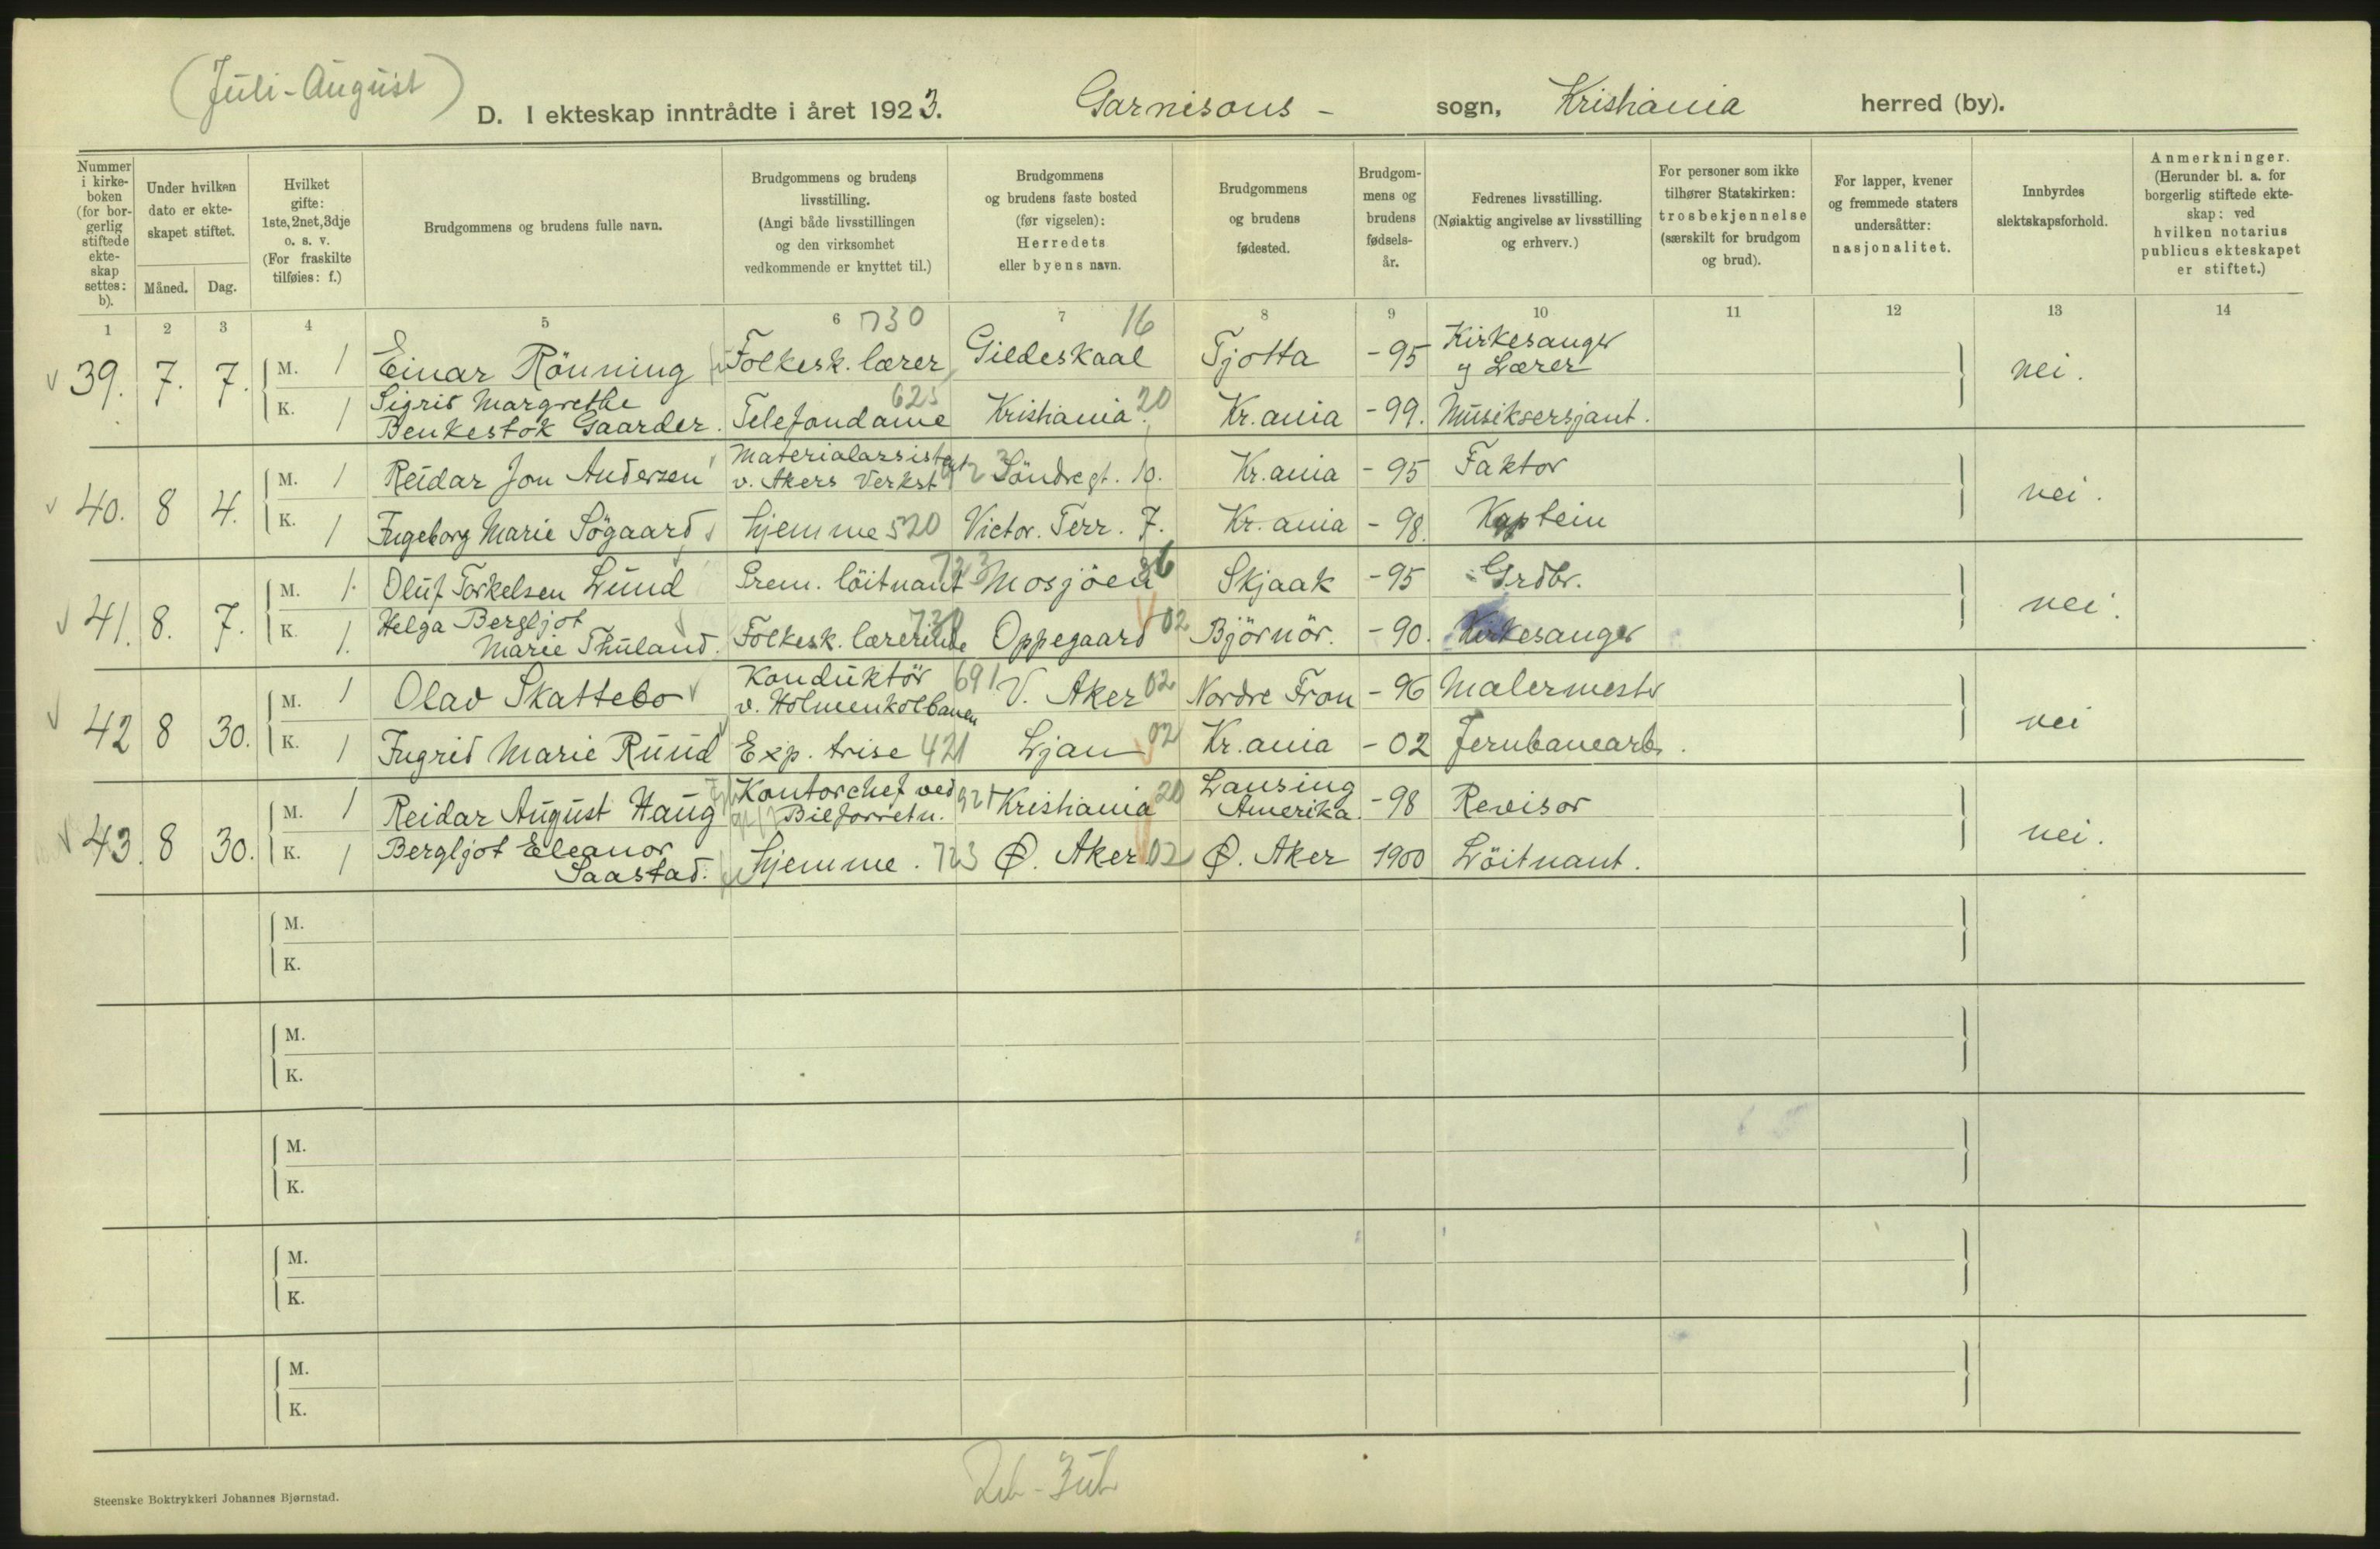 (Juli-August)
D. I ekteskap inntrådte i året 1923. Garnisons - sogn, Kristiania herred (by).
Nummer i kirke- boken (for bor- gerlig stiftede ekte- skap settes: b).
Under hvilken dato er ekte- skapet stiftet.
Måned. Dag.
Hvilket gifte: 1ste, 2net, 3dje o. s. v. (For fraskilte tilføies: f.)
Brudgommens og brudens fulle navn.
Brudgommens og brudens livsstilling. (Angi både livsstillingen og den virksomhet vedkommende er knyttet til.)
Brudgommens og brudens faste bosted (før vigselen): Herredets eller byens navn.
Brudgommens og brudens fødested.
Brudgom- mens og brudens fødsels- år.
Fedrenes livsstilling. (Nøiaktig angivelse av livsstilling og erhverv.)
For personer som ikke tilhører Statskirken: trosbekjennelse (særskilt for brudgom og brud).
For lapper, kvener og fremmede staters undersåtter: nasjonalitet.
Innbyrdes slektskapsforhold.
Anmerkninger. (Herunder bl. a. for borgerlig stiftede ekte- skap: ved hvilken notarius publicus ekteskapet er stiftet.)
1 2 3 4 5 6 7 8 9 10 11 12 13 14
730 16
39. 7. 7. M. 1 Einar Rönning Folkesk. lærer Gildeskaal Tjotta -95 Kirkesanger og Lærer nei.
K. 1 Sigrid Margrethe Benkestok Gaarder. Telefondame 625 Kristiania 20 Kr.ania -99. Musiksersjant.
40. 8 4. M. 1 Reidar Jon Andersen Materialassistent v. Akers Verkst. Söndregt. 10. Kr.ania -95 Faktor nei.
K. 1 Ingeborg Marie Sögaard hjemme 520 Victor. Terr. 7. Kr.ania -98. Kaptein
41. 8. 7. M. 1. Oluf Torkelsen Lund Prem. löitnant 723 Mosjöen 26 Skjaak -95 Grdbr. nei.
K. 1. Helga Bergljot Marie Thuland. Folkesk. lærerinde 730 Oppegaard 02 Björnör. -90. Kirkesanger
42 8 30. M. 1 Olav Skattebo Konduktör v. Holmenkolbanen 691 V. Aker 02 Nordre Fron -96 Malermester nei
K. 1 Ingrid Marie Ruud Exp. trise 421 Ljan 02 Kr.ania -02 Jernbanearb.
43. 8 30. M. 1 Reidar August Haug Kontorchef ved Bilforretn. 921 Kristiania 20 Lansing Amerika. -98 Revisor nei.
K. 1 Bergljot Eleanor Saastad. hjemme. 723 Ø. Aker 02 Ø. Aker 1900 Löitnant.
M.
K.
M.
K.
M.
K.
M.
K.
M.
K.
Steenske Boktrykkeri Johannes Bjørnstad.